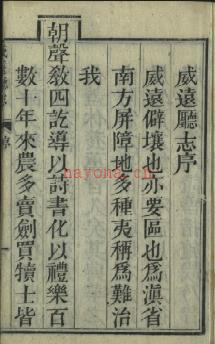 威遠廳志序
威遠僻壤也亦要區也爲滇省
南方屏障地多種夷稱爲難治
我
朝聲教四訖導以詩書化以禮樂百
數十年來農多賣劍買犢士皆
nayona.cn
序